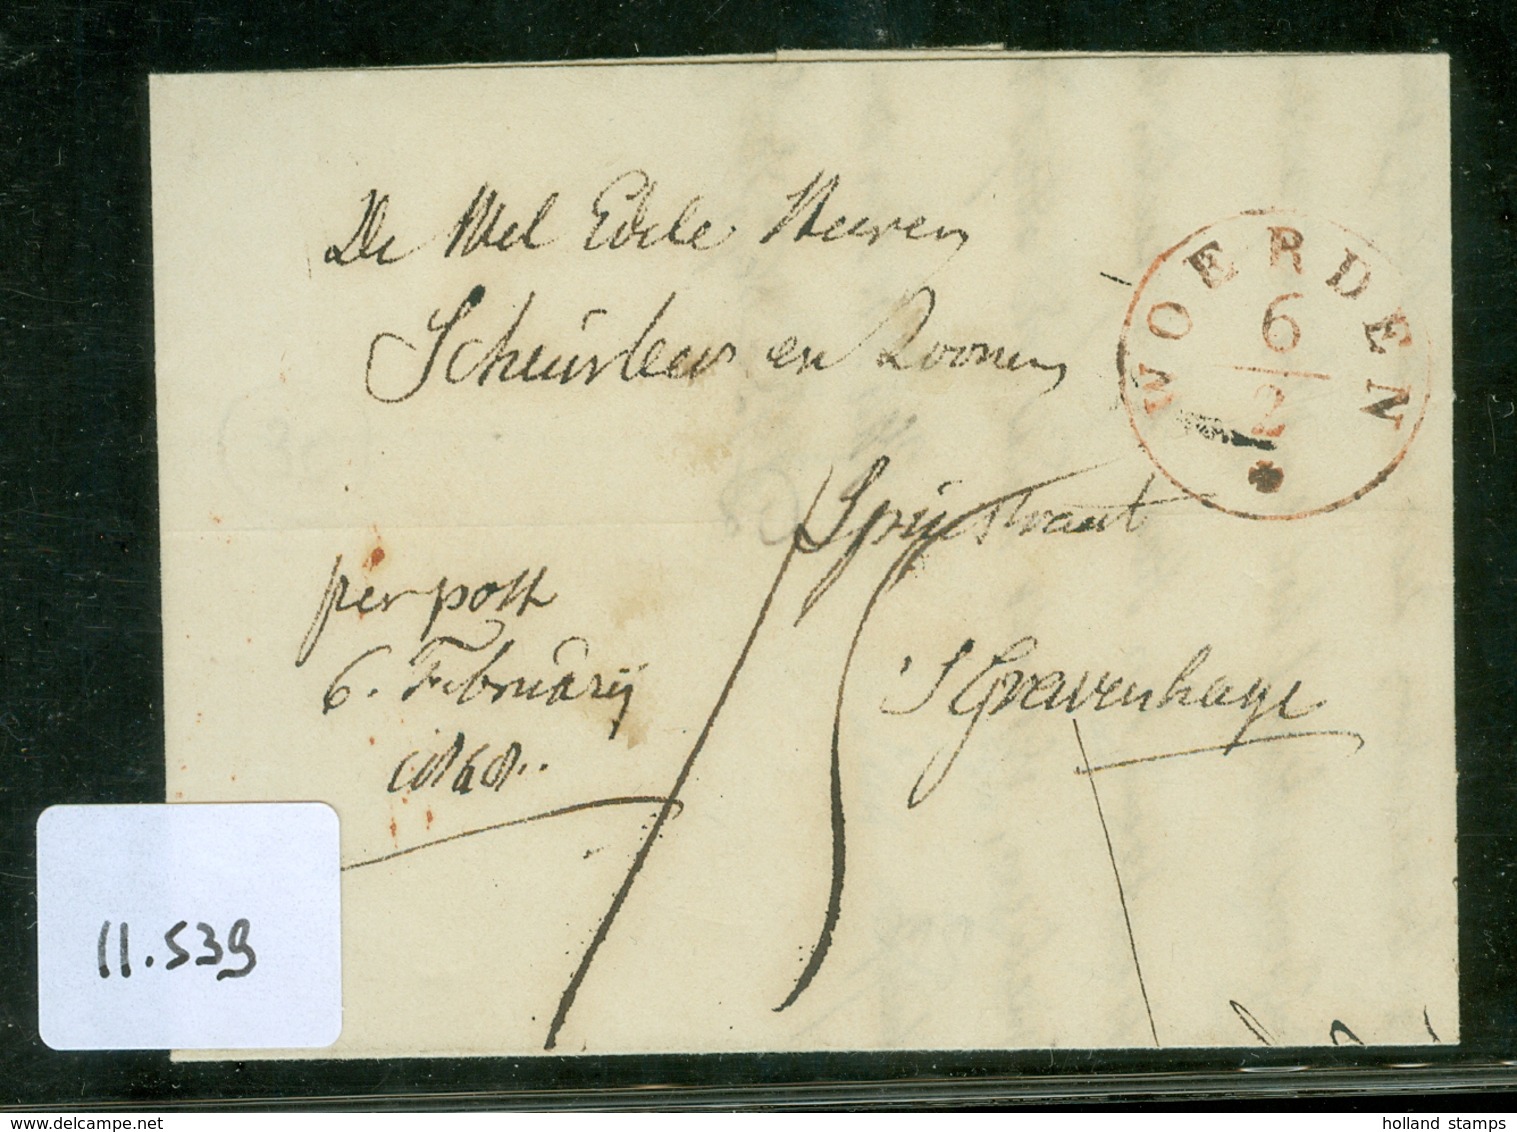 De Wel Edele Heeren
Scheurleer en Zoonen
Spuistraat
'S Gravenhage
per post
6. Februarij
1868..
15
WOERDEN
6
2
11.539
holland stamps